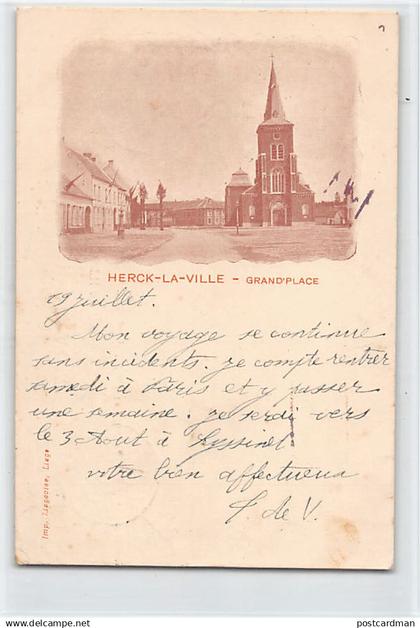 HERCK-LA-VILLE - GRAND'PLACE
29 juillet.
Mon voyage se continue
sans incidents. je compte rentrer
samedi à Paris et y passer
une semaine. je serai vers
le 3 Août à
votre bien affectueux
de V.
Imp. Liégeoise, Liége
postcardman